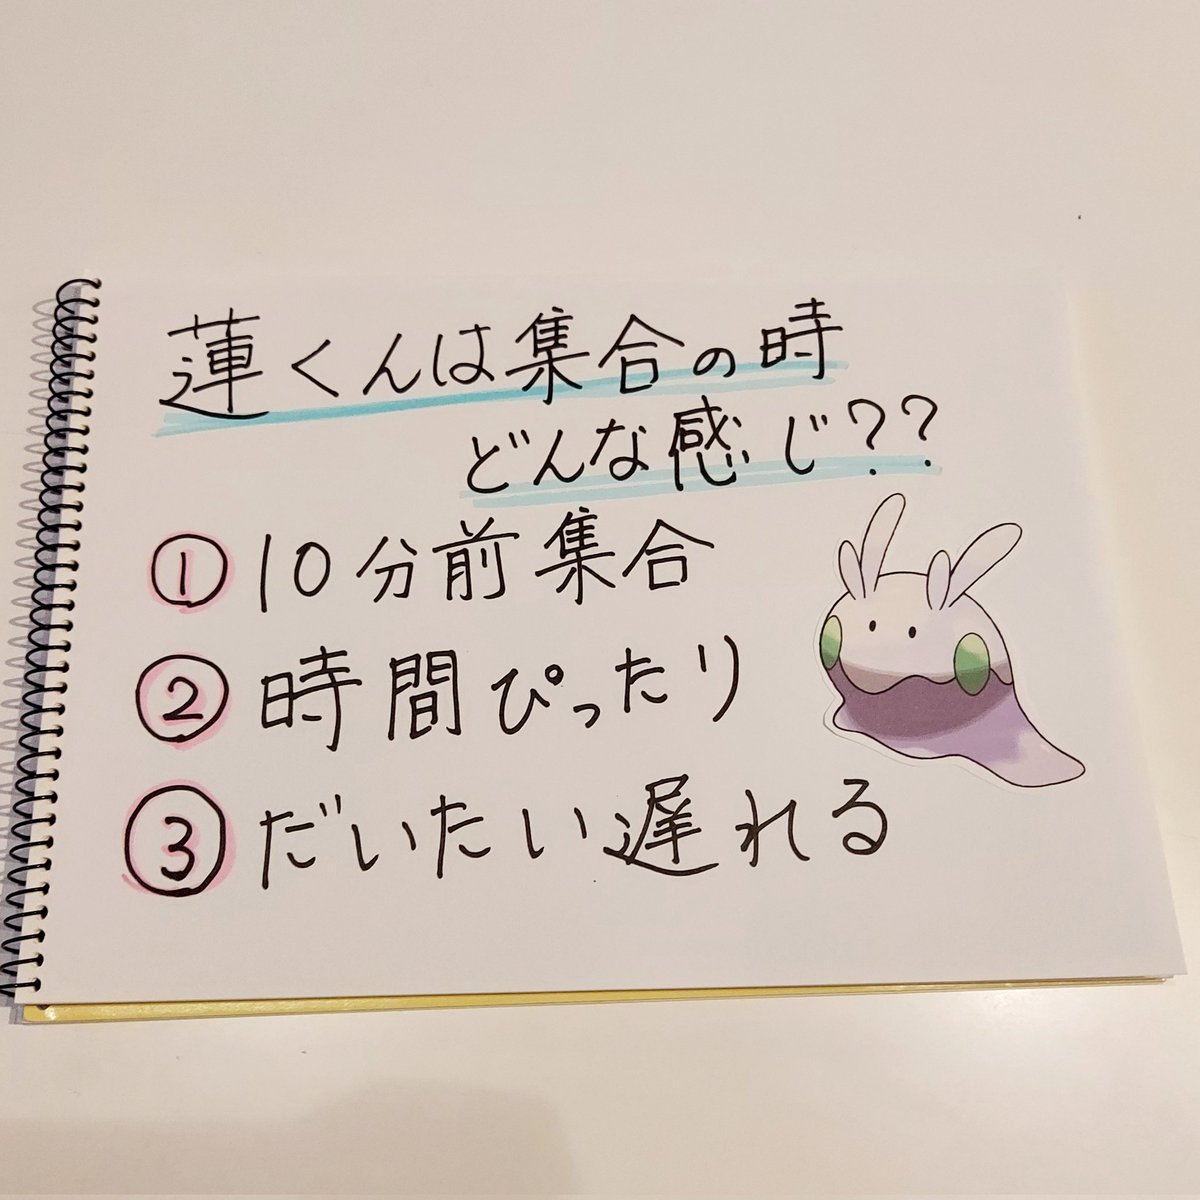 蓮くんは集合の時
どんな感じ??
① 10分前集合
② 時間ぴったり
③ だいたい遅れる